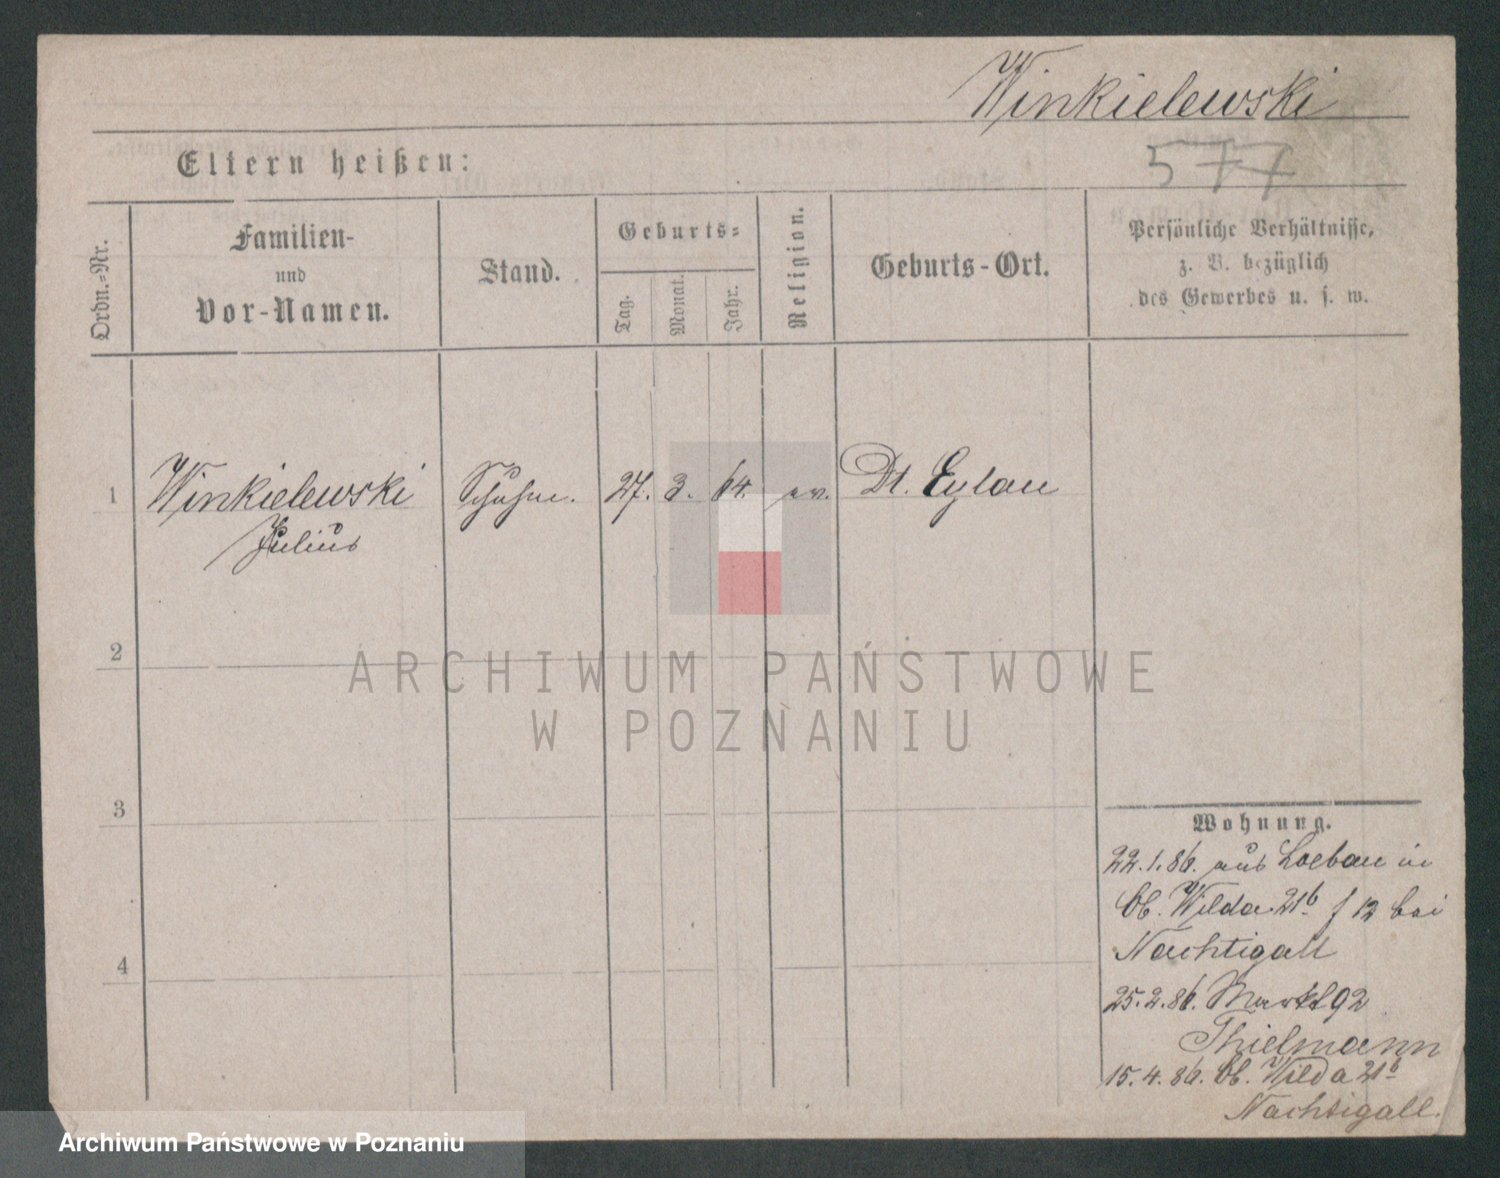 Winkielewski
Eltern heißen:
577
Ordn.-Nr.
Familien-
und
Vor-Namen.
Stand.
Geburts-
Tag.
Monat.
Jahr.
Religion.
Geburts-Ort.
Persönliche Verhältnisse,
z. B. bezüglich
des Gewerbes u. s. w.
1 Winkielewski Schuhm. 27. 3. 64. ev. Dt. Eylau
Julius
2
3
4
ARCHIWUM PAŃSTWOWE
W POZNANIU
Wohnung.
22.1.86. aus Loebau in
Ob. Wilda 21b f 12 bei
Nachtigall
25.2.86. Markt 92
Thielmann
15.4.86. Ob. Wilda 21b
Nachtigall.
Archiwum Państwowe w Poznaniu